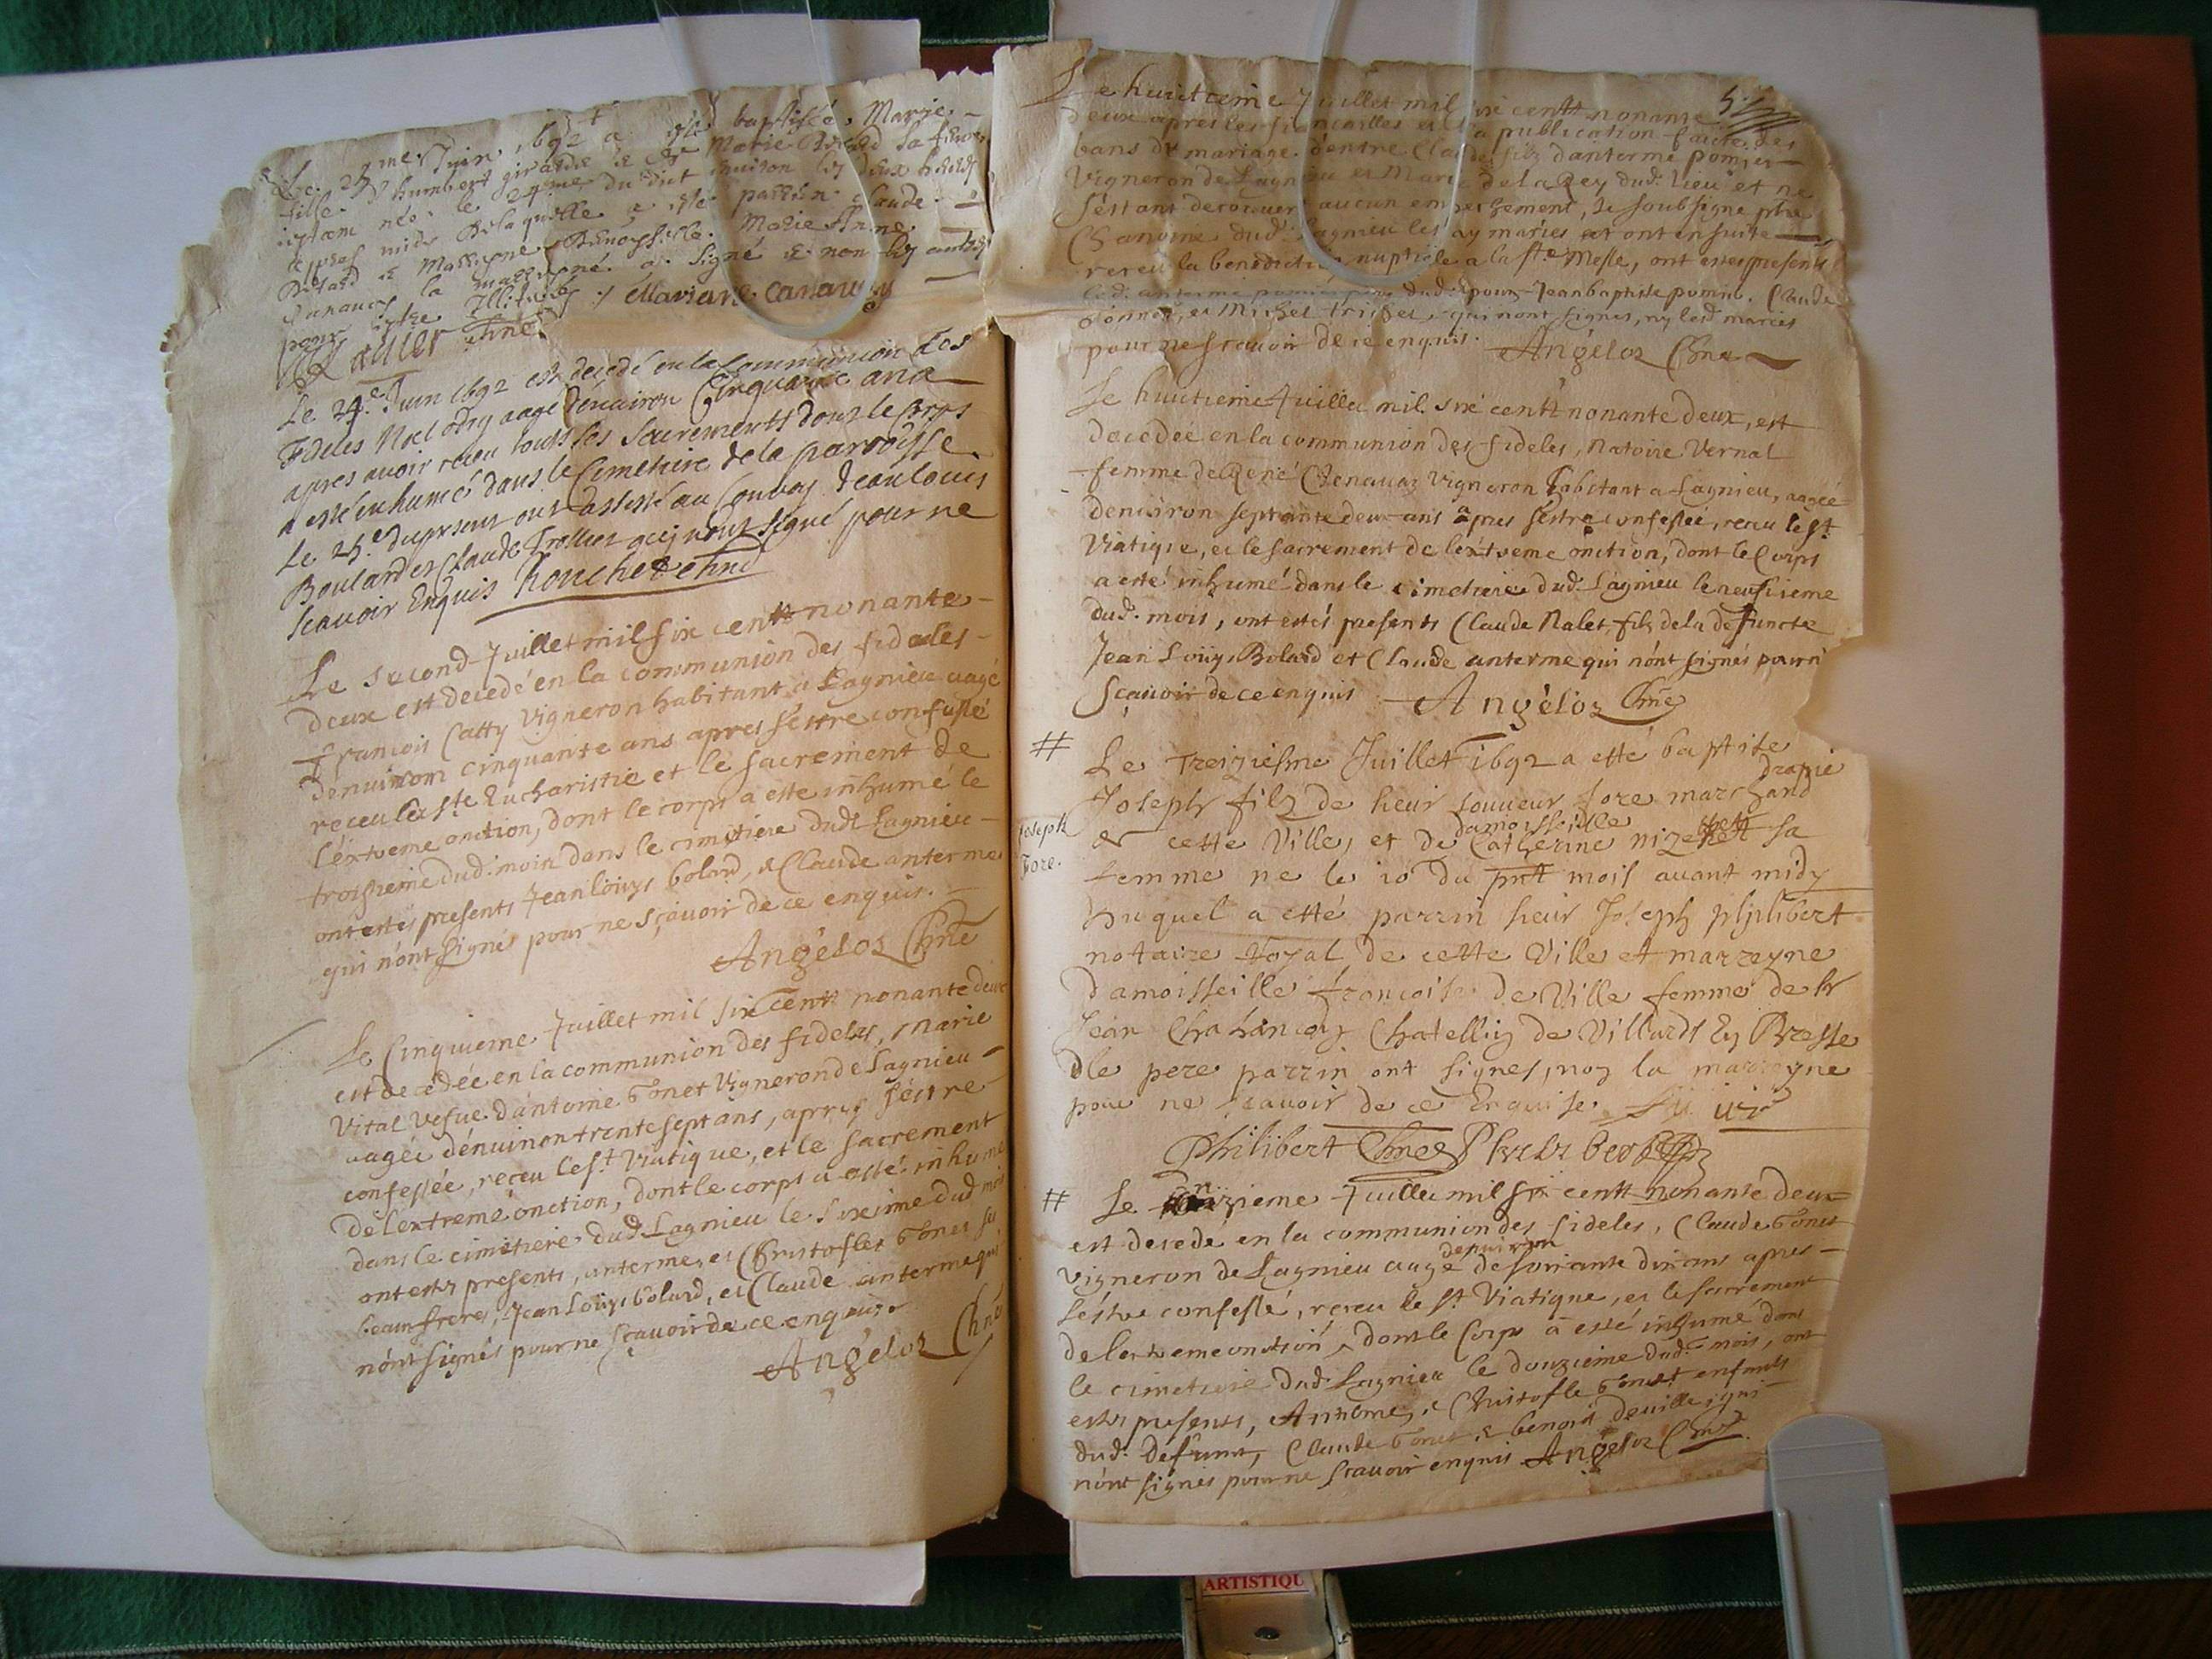 Le 25me Juin 1692 a esté baptisée Marie
fille d'humbert girarde & de Marie sa feme
née le 24me du dict environ les deux heures
apres midy de laquelle a esté parrin Claude
Marie Anne
Canauas la marrayne a signé & non les autres
pour estre Illiterés Mariane Canauas
Chne
Le 24e Juin 1692 est decedé en la Communion des
Fideles Noel aagé d'enuiron Cinquante ans
apres auoir receu touts les Sacrements dont le Corps
a esté enhumé dans le Cimetiere de la parroisse
Le 25e du present ont assisté au Convoy Jean Louis
Boulard et Claude Trollier qui n'ont signé pour ne
scauoir Enquis Rouchet Chne
Le second Juillet mil six centt nonante
deux est decedé en la communion des fideles
francois Catty Vigneron habitant a Lagnieu aagé
d'enuiron cinquante ans apres s'estre confessé
receu la ste Eucharistie et le sacrement de
l'extreme onction, dont le corps a esté inhumé le
troisieme dud. mois dans le cimetiere dud. Lagnieu
ont estés presents Jean louys bolard, & Claude anterme
qui n'ont signés pour ne sçauoir de ce enquis.
Angelos Chne
Le Cinquieme Juillet mil six centt nonante deux
est decedée en la communion des fideles, Marie
Vital Vefue d'antoine Gonet Vigneron de Lagnieu
aagée d'enuiron trente sept ans, apres s'estre
confessée, receu le st Viatique, et le sacrement
de l'extreme onction, dont le corps a esté inhumé
dans le cimetiere dud. Lagnieu le sixieme dud. mois
ont estés presents, anterme, et Christofles Gonet ses
beaux freres, Jean Louys bolard, et Claude anterme qui
n'ont signés pour ne sçauoir de ce enquis.
Angelos Chne
5.
Le huictieme Juillet mil six centt nonante
deux apres les fiancailles et la publication faicte des
bans de mariage d'entre Claude filz d'anterme pomier
Vigneron de Lagnieu et Marie de la Rey dud. lieu et ne
s'estant decouuert aucun empeschement, Je soubsigne ptre
Chanoine dud. Lagnieu les ay mariés et ont ensuite
receu la benediction nuptiale a la ste Messe, ont estes presents
led. anterme pomier pere dud. epoux Jean baptiste pomier. Claude
et Michel qui n'ont signés, ny lesd mariés
pour ne scauoir de ce enquis. Angelos Chne
Le huictieme Juillet mil six centt nonante deux, est
decedée en la communion des fideles, Antoine Vernal
femme de René Chenauas Vigneron habitant a Lagnieu, aagée
d'enuiron septante deux ans apres s'estre confessée, receu le st.
Viatique, et le sacrement de l'extreme onction, dont le Corps
a esté inhumé dans le cimetiere dud. Lagnieu le neufuieme
dud. mois, ont estés presents Claude Nalet fils de la defuncte
Jean Louys Bolard et Claude anterme qui n'ont signés pour n
sçauoir de ce enquis Angelos Chne
# Le Treiziesme Juillet 1692 a etté baptise
drapié
Joseph filz de sieur fore marchand
Joseph
Fore.
damoisseille
de cette Ville, et de Catherine sa
femme ne le 10 du pntt mois auant midy
Duquel a etté parrin sieur Joseph philibert
notaire Royal de cette Ville et marrayne
Damoisseille francoise de Ville femme de sr
Jean Chatellin de Villards En Bresse
Dle pere parrin ont signes, non la marrayne
pour ne scauoir de ce Enquise
Philibert Chne Philibert
# Le onzieme Juillet mil six centt nonante deux
est decede en la communion des fideles, Claude Gonet
denuiron
vigneron de Lagnieu aagé de soixante dix ans apres
s'estre confessé, receu le st. Viatique, et le sacrement
de lextreme onction, dont le Corps a esté inhumé dans
le cimetiere dud. Lagnieu le douzieme dud. mois, ont
estés presents, Antherme, & Christofle Gonet enfants
dud. Defunct, Claude Gonet, & benoist deville, qui
n'ont signes pour ne scauoir enquis Angelos Chne.
ARTISTIQU